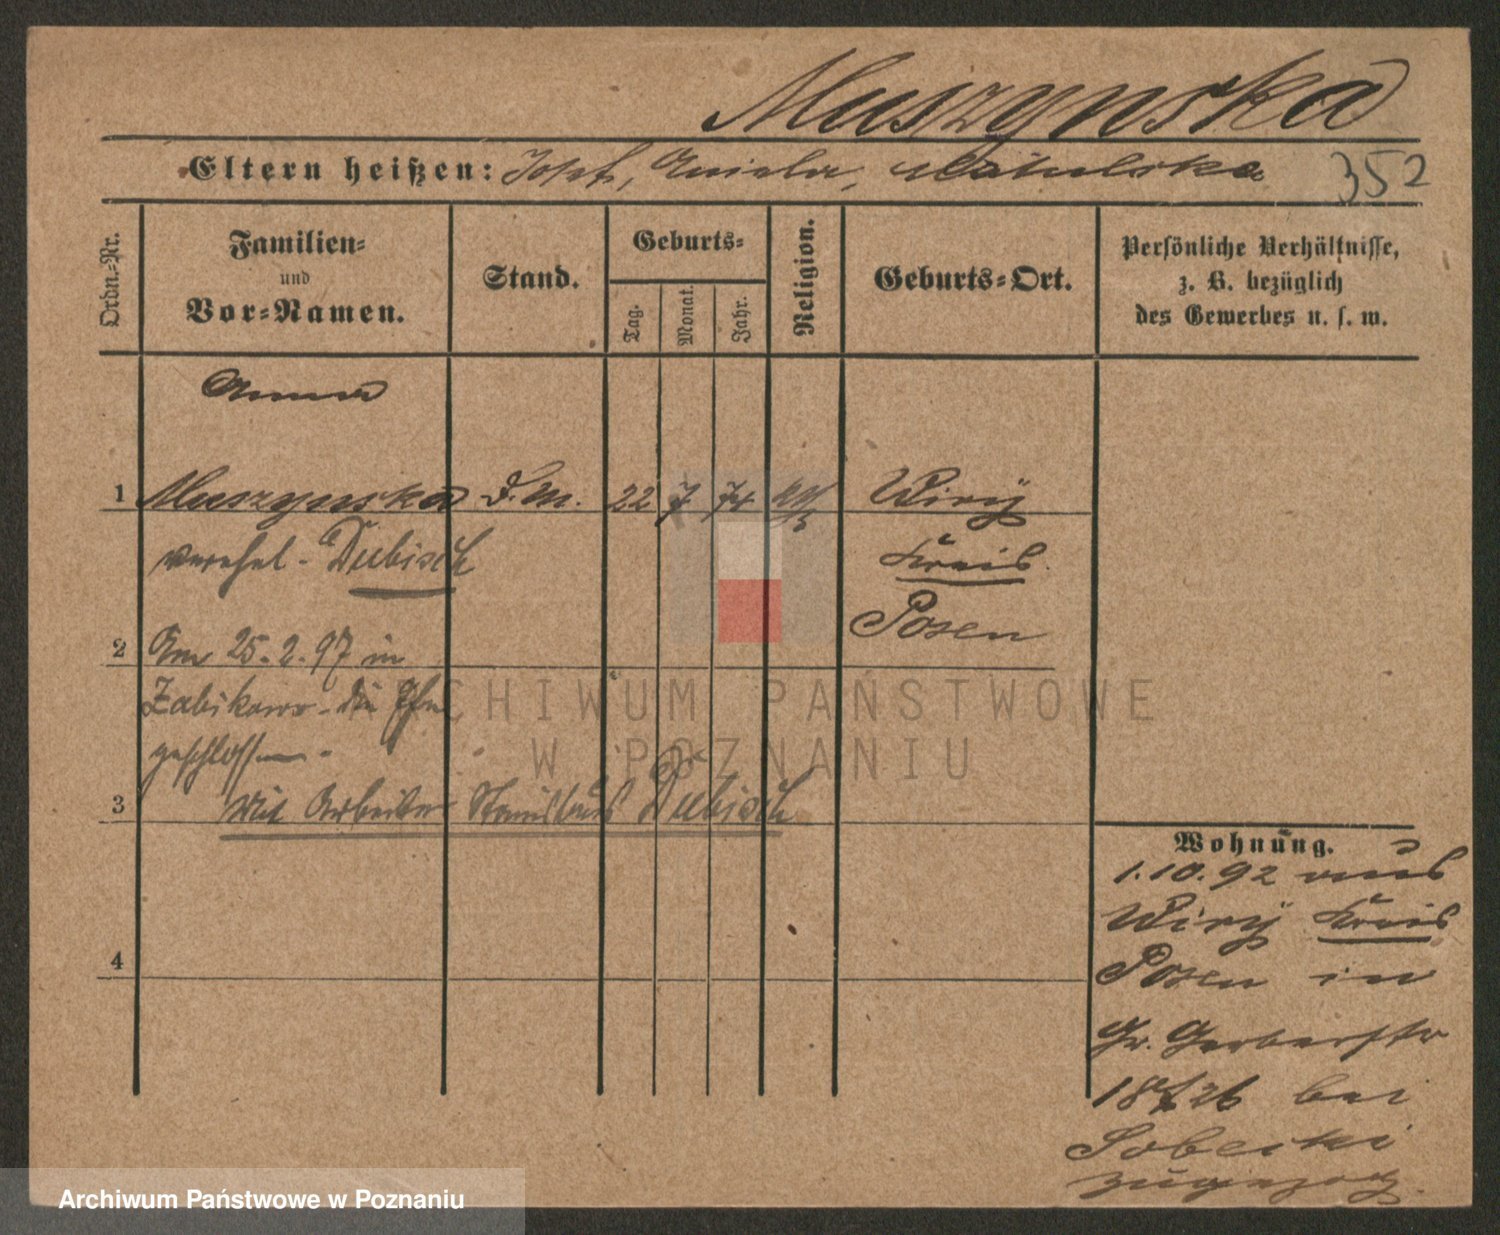 Muszynska
Eltern heißen: Josef, Aniela, Matulska 352
Ordn.-Nr.
Familien-
und
Vor-Namen.
Stand.
Geburts-
Tag.
Monat.
Jahr.
Religion.
Geburts-Ort.
Persönliche Verhältnisse,
z. B. bezüglich
des Gewerbes u. s. w.
Anna
1 Muszynska D. M. 22 7 74 Wiry
verehel. Dubisch Kreis
Posen
2 Am 25.2.97 in
Zabikowo die Ehe
geschlossen.
3 Mit Arbeiter Stanislaus Dubisch
4
Wohnung.
1.10.92 aus
Wiry Kreis
Posen in
Gr. Gerberstr
bei
Sobecki
zugezog.
ARCHIWUM PAŃSTWOWE
W POZNANIU
Archiwum Państwowe w Poznaniu